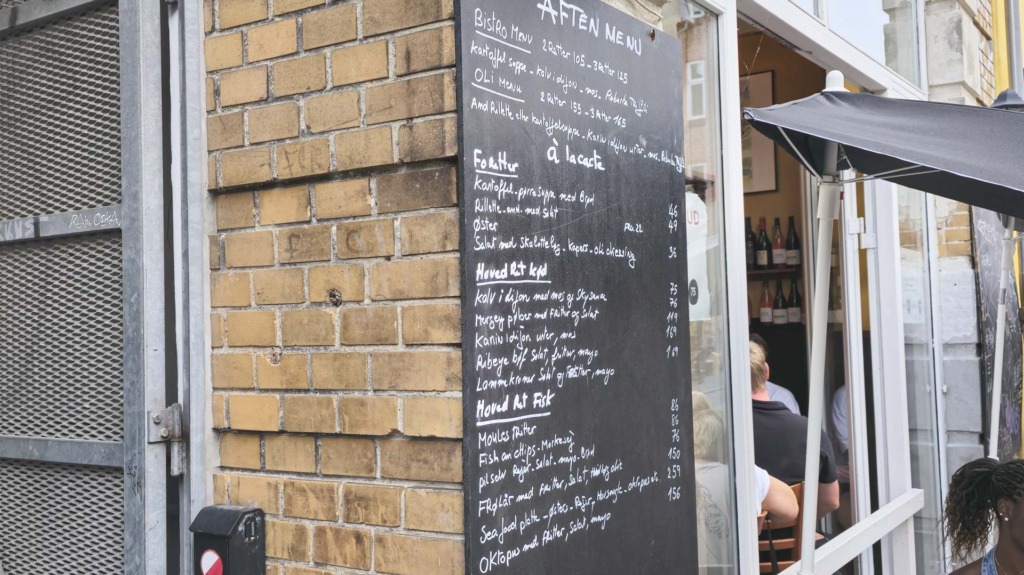 AFTEN MENU
BISTRO MENU 2 Retter 105 - 3 Retter 125
Kartoffel suppe - Kalv i dijon - mos,
OLI MENU 2 Retter 155 - 3 Retter 165
And Rillette eller kartoffelsuppe - Kanin i dijon urter, mos,
à la carte
Foretter
Kartoffel-porre suppe med Brød 46
Rillette - and med Salat 49
Øster
Salat med Skalotteløg - kapers - oli dressing 36
Hoved Ret kød
Kalv i dijon med mos og Sky sauce 75
med fritter og Salat 76
Kanin i dijon urter, mos 119
Ribeye bøf Salat, fritter, mayo 169
Lammekrone Salat og fritter, mayo 169
Hoved Ret Fisk
Moules fritter 86
Fish and chips - 86
Pil selv Rejer - Salat - mayo - Brød 76
med fritter, Salat, 150
Seafood platte - østers - Rejer, 259
Oktopus med fritter, Salat, mayo 156